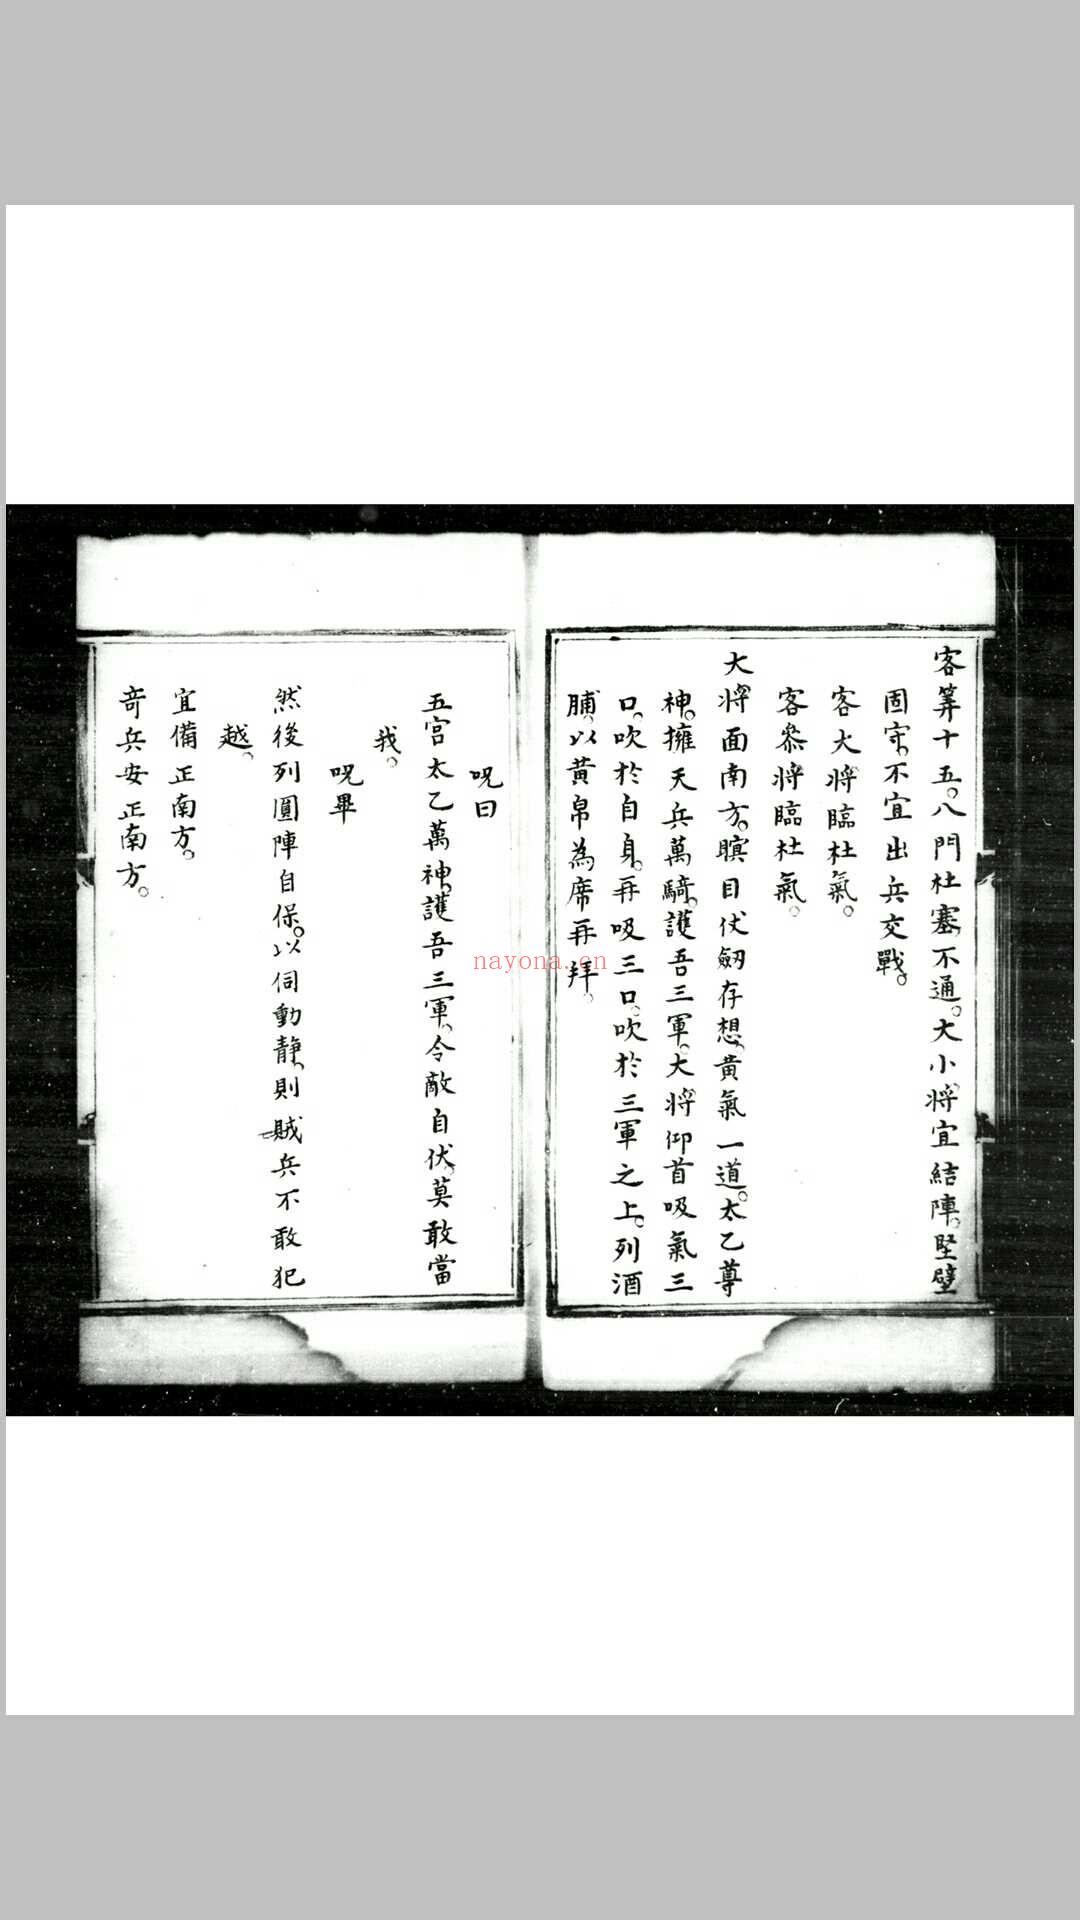 客筭十五。八門杜塞不通。大小將宜結陣。堅壁
固守。不宜出兵交戰。
客大將臨杜氣。
客叅將臨杜氣。
大將面南方。瞑目伏劔存想。黃氣一道。太乙尊
神。擁天兵萬騎。護吾三軍。大將仰首吸氣三
口。吹於自身。再吸三口。吹於三軍之上。列酒
脯。以黃帛為席再拜。
呪曰
五宫太乙萬神。護吾三軍。令敵自伏。莫敢當
我。
呪畢
然後列圓陣自保。以伺動靜。則賊兵不敢犯
越。
宜備正南方。
竒兵安正南方。
nayona.cn